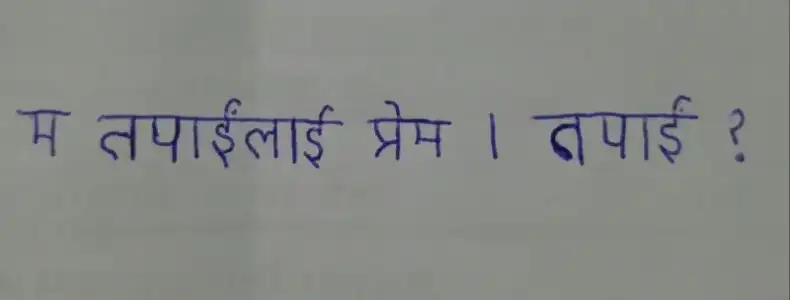 म तपाईंलाई प्रेम । तपाई ?